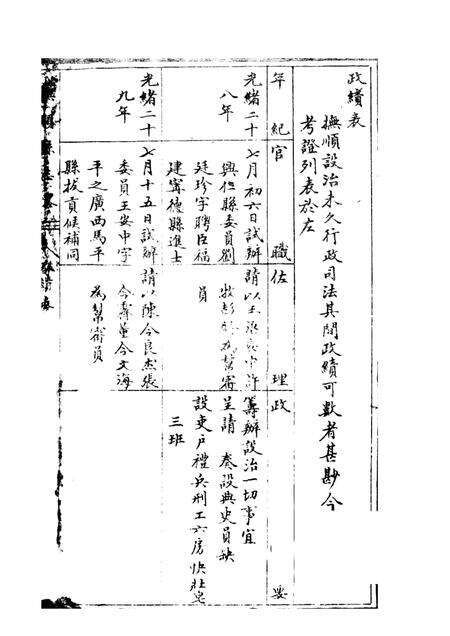 政績表
撫順設治未久行政司法其間政績可數者甚尠今
考證列表於左
年紀
官職
佐理
政要
光緒二十
八年
七月初六日試辦
興仁縣委員劉
廷珍字聘臣福
建寧德縣進士
請以
為幫審
員
籌辦設治一切事宜
呈請 奏設典吏員缺
設吏戶禮兵刑工六房快壯皂
三班
光緒二十
九年
七月十五日試辦
委員王安中字
平之廣西馬平
縣拔貢候補同
請以陳令良杰張
令壽董令文海
為幫審員